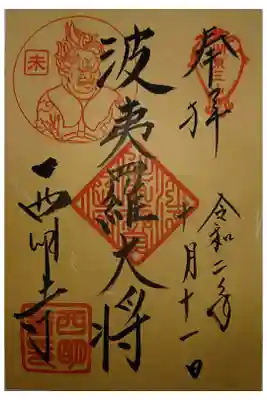 奉拝
令和二年
十月十一日
波夷羅大将
西明寺
未
西明